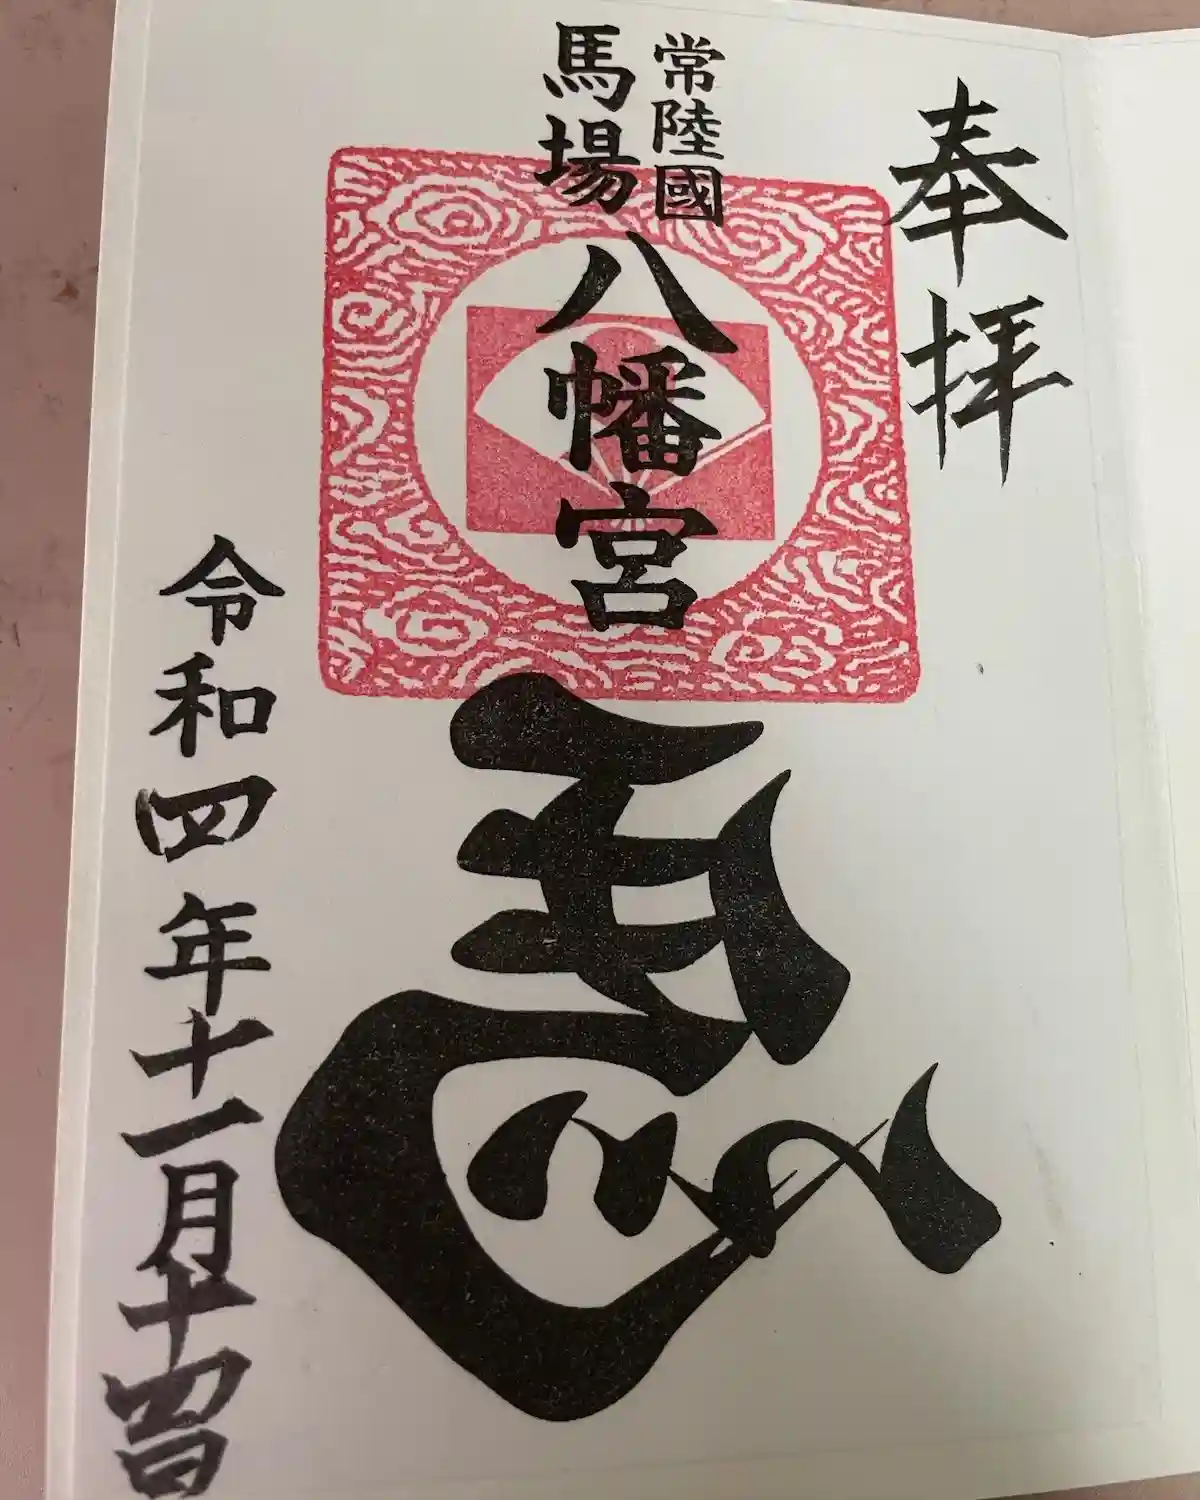 奉拝
常陸國
馬場八幡宮
馬
令和四年十一月十四日